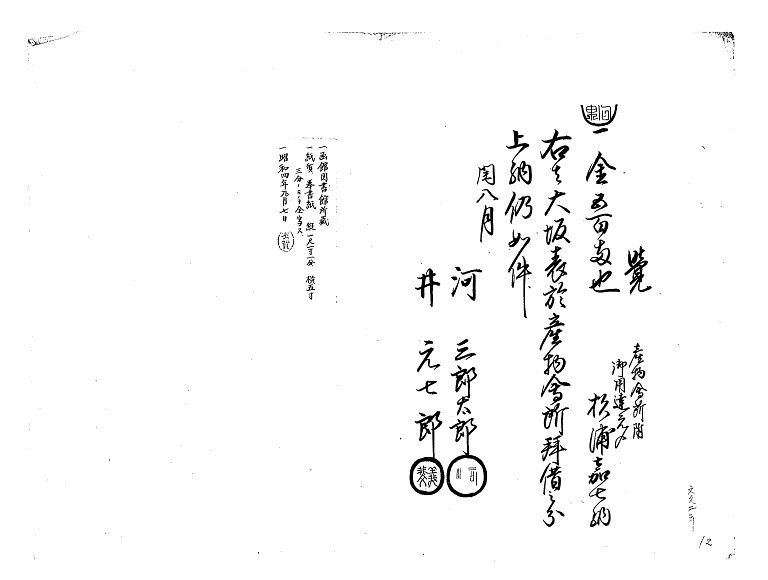 覺
一金五百両也
産物會所附
御用達元〆
松浦嘉七納
右者大坂表於産物會所拜借之分
上納仍如件
閏八月
河三郎太郎
井元七郎
一函館図書館所蔵
一紙質奉書紙 縦一尺一寸一分 横五寸
一昭和四年九月七日
文久二年
12